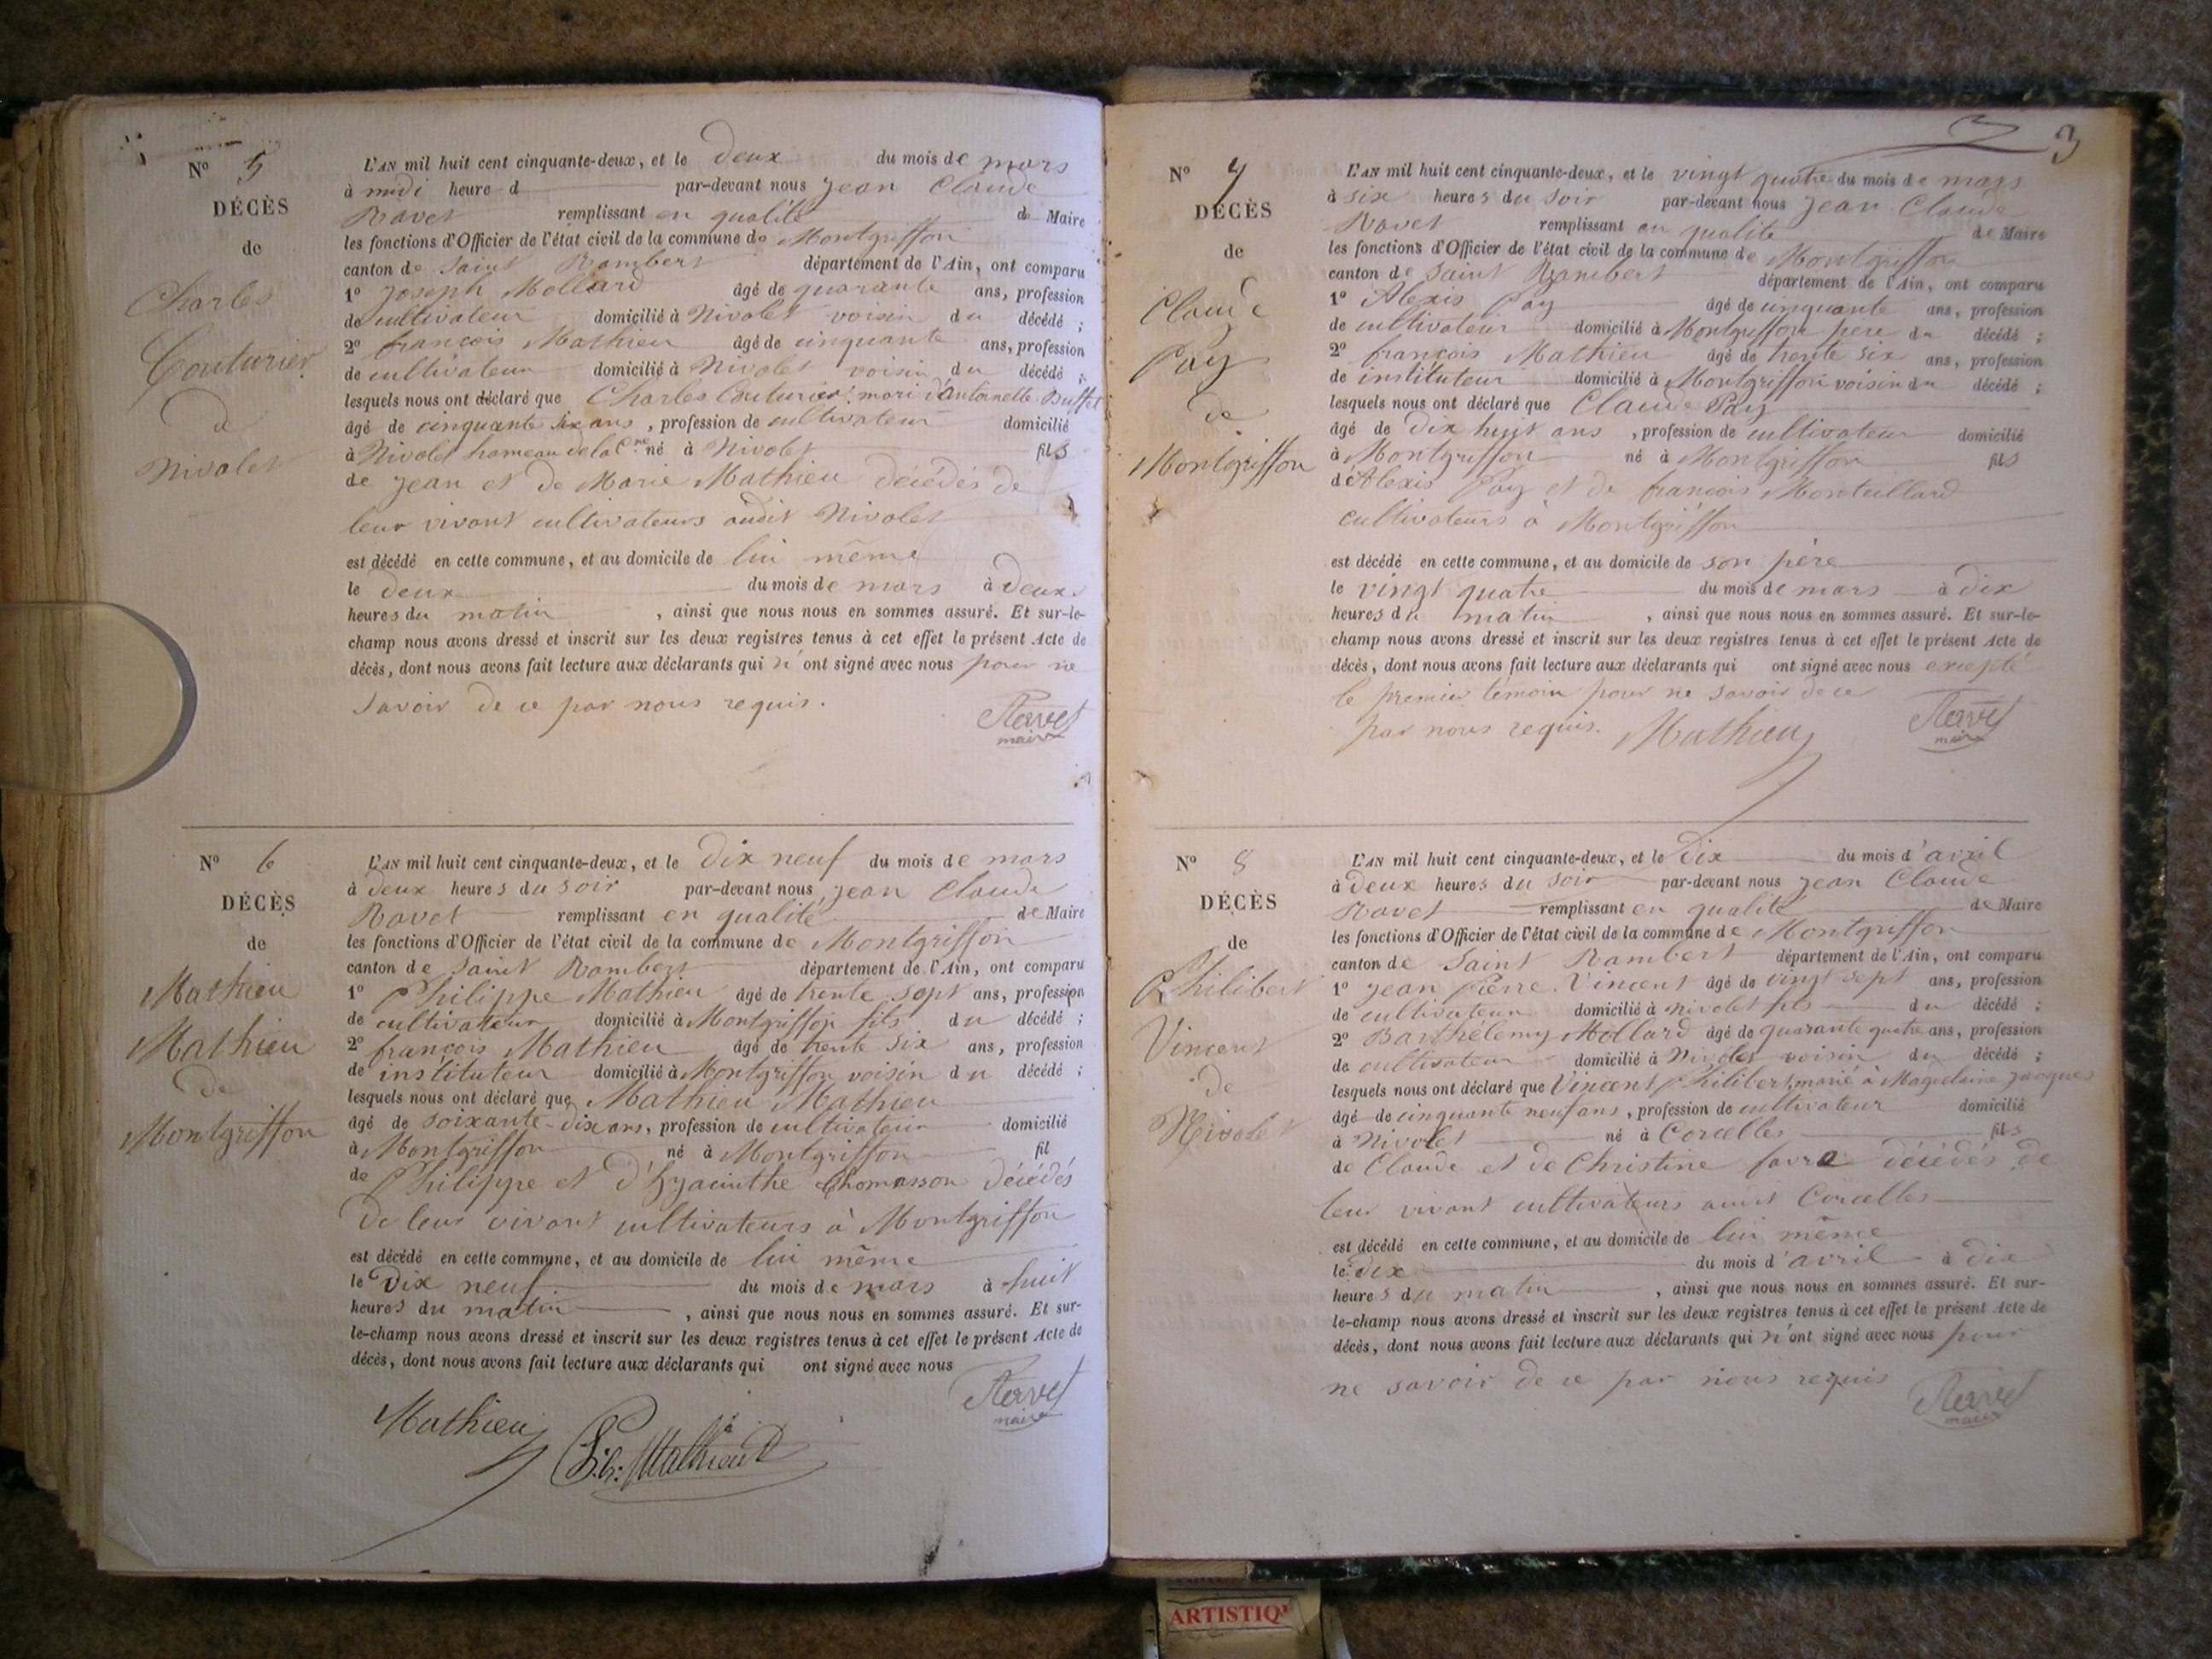 Nº 5
DÉCÈS
de
Charles
Couturier
de
Nivolet
L'AN mil huit cent cinquante-deux, et le deux du mois de mars
à midi heure d par-devant nous Jean Claude
Ravet remplissant en qualité de Maire
les fonctions d'Officier de l'état civil de la commune de Montgriffon
canton de Saint Rambert département de l'Ain, ont comparu
1º Joseph Mollard âgé de quarante ans, profession
de cultivateur domicilié à Nivolet voisin du décédé ;
2º françois Mathieu âgé de cinquante ans, profession
de cultivateur domicilié à Nivolet voisin du décédé ;
lesquels nous ont déclaré que Charles Couturier mari d'Antoinette Buffet
âgé de cinquante six ans, profession de cultivateur domicilié
à Nivolet hameau de la Cne né à Nivolet fils
de Jean et de Marie Mathieu décédés de
leur vivant cultivateurs audit Nivolet
est décédé en cette commune, et au domicile de lui même
le deux du mois de mars à deux
heures du matin, ainsi que nous nous en sommes assuré. Et sur-le-
champ nous avons dressé et inscrit sur les deux registres tenus à cet effet le présent Acte de
décès, dont nous avons fait lecture aux déclarants qui n'ont signé avec nous pour ne
savoir de ce par nous requis.
Ravet
maire
Nº 6
DÉCÈS
de
Mathieu
Mathieu
de
Montgriffon
L'AN mil huit cent cinquante-deux, et le dix neuf du mois de mars
à deux heures du soir par-devant nous Jean Claude
Ravet remplissant en qualité de Maire
les fonctions d'Officier de l'état civil de la commune de Montgriffon
canton de Saint Rambert département de l'Ain, ont comparu
1º Philippe Mathieu âgé de trente sept ans, profession
de cultivateur domicilié à Montgriffon fils du décédé ;
2º françois Mathieu âgé de trente six ans, profession
de instituteur domicilié à Montgriffon voisin du décédé ;
lesquels nous ont déclaré que Mathieu Mathieu
âgé de soixante-dix ans, profession de cultivateur domicilié
à Montgriffon né à Montgriffon fil
de Philippe et d'hyacinthe Chomasson décédés
de leur vivant cultivateurs à Montgriffon
est décédé en cette commune, et au domicile de lui même
le dix neuf du mois de mars à huit
heures du matin, ainsi que nous nous en sommes assuré. Et sur-
le-champ nous avons dressé et inscrit sur les deux registres tenus à cet effet le présent Acte de
décès, dont nous avons fait lecture aux déclarants qui ont signé avec nous
Ravet
maire
Mathieu
Mathieu
3
Nº 7
DÉCÈS
de
Claude
Pay
de
Montgriffon
L'AN mil huit cent cinquante-deux, et le vingt quatre du mois de mars
à six heures du soir par-devant nous Jean Claude
Ravet remplissant en qualité de Maire
les fonctions d'Officier de l'état civil de la commune de Montgriffon
canton de Saint Rambert département de l'Ain, ont comparu
1º Alexis Pay âgé de cinquante ans, profession
de cultivateur domicilié à Montgriffon père du décédé ;
2º françois Mathieu âgé de trente six ans, profession
de instituteur domicilié à Montgriffon voisin du décédé ;
lesquels nous ont déclaré que Claude Pay
âgé de dix huit ans, profession de cultivateur domicilié
à Montgriffon né à Montgriffon fils
d'Alexis Pay et de françois Montillard
cultivateurs à Montgriffon
est décédé en cette commune, et au domicile de son père
le vingt quatre du mois de mars à dix
heures du matin, ainsi que nous nous en sommes assuré. Et sur-le-
champ nous avons dressé et inscrit sur les deux registres tenus à cet effet le présent Acte de
décès, dont nous avons fait lecture aux déclarants qui ont signé avec nous excepté
le premier témoin pour ne savoir de ce
par nous requis. Mathieu
Ravet
maire
Nº 8
DÉCÈS
de
Philibert
Vincent
de
Nivolet
L'AN mil huit cent cinquante-deux, et le dix du mois d'avril
à deux heures du soir par-devant nous Jean Claude
Ravet remplissant en qualité de Maire
les fonctions d'Officier de l'état civil de la commune de Montgriffon
canton de Saint Rambert département de l'Ain, ont comparu
1º Jean Pierre Vincent âgé de vingt sept ans, profession
de cultivateur domicilié à nivolet fils du décédé ;
2º Barthélemy Mollard âgé de quarante quatre ans, profession
de cultivateur domicilié à Nivolet voisin du décédé ;
lesquels nous ont déclaré que Vincent Philibert, marié à Magdelaine Jacques
âgé de cinquante neuf ans, profession de cultivateur domicilié
à Nivolet né à Corcelles fils
de Claude et de Christine favre décédés de
leur vivant cultivateurs audit Corcelles
est décédé en cette commune, et au domicile de lui même
le dix du mois d'avril à dix
heures du matin, ainsi que nous nous en sommes assuré. Et sur-
le-champ nous avons dressé et inscrit sur les deux registres tenus à cet effet le présent Acte de
décès, dont nous avons fait lecture aux déclarants qui n'ont signé avec nous pour
ne savoir de ce par nous requis
Ravet
maire
ARTISTIQ